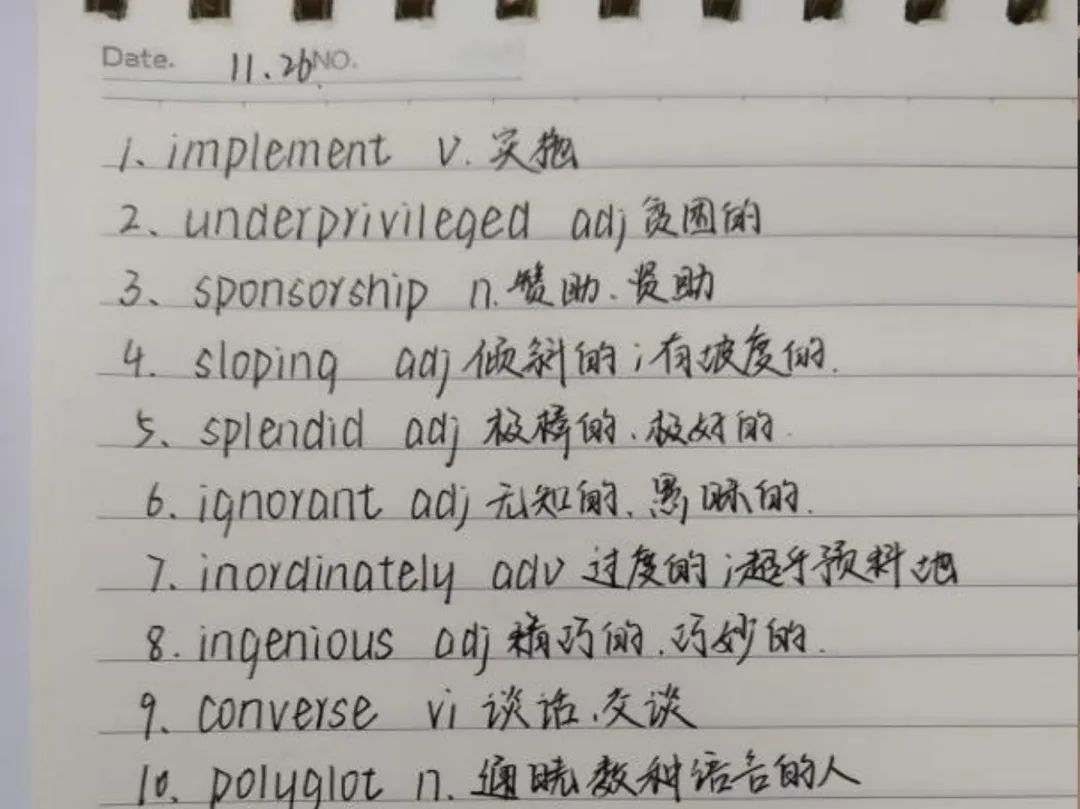 Date. 11.26 NO.
1. implement v. 实施
2、underprivileged adj 贫困的
3、sponsorship n. 赞助、资助
4. sloping adj 倾斜的；有坡度的.
5、splendid adj 极棒的、极好的.
6. ignorant adj 无知的、愚昧的.
7. inordinately adv 过度的；超乎预料地
8. ingenious adj 精巧的、巧妙的.
9. converse vi 谈话、交谈
10. polyglot n. 通晓数种语言的人